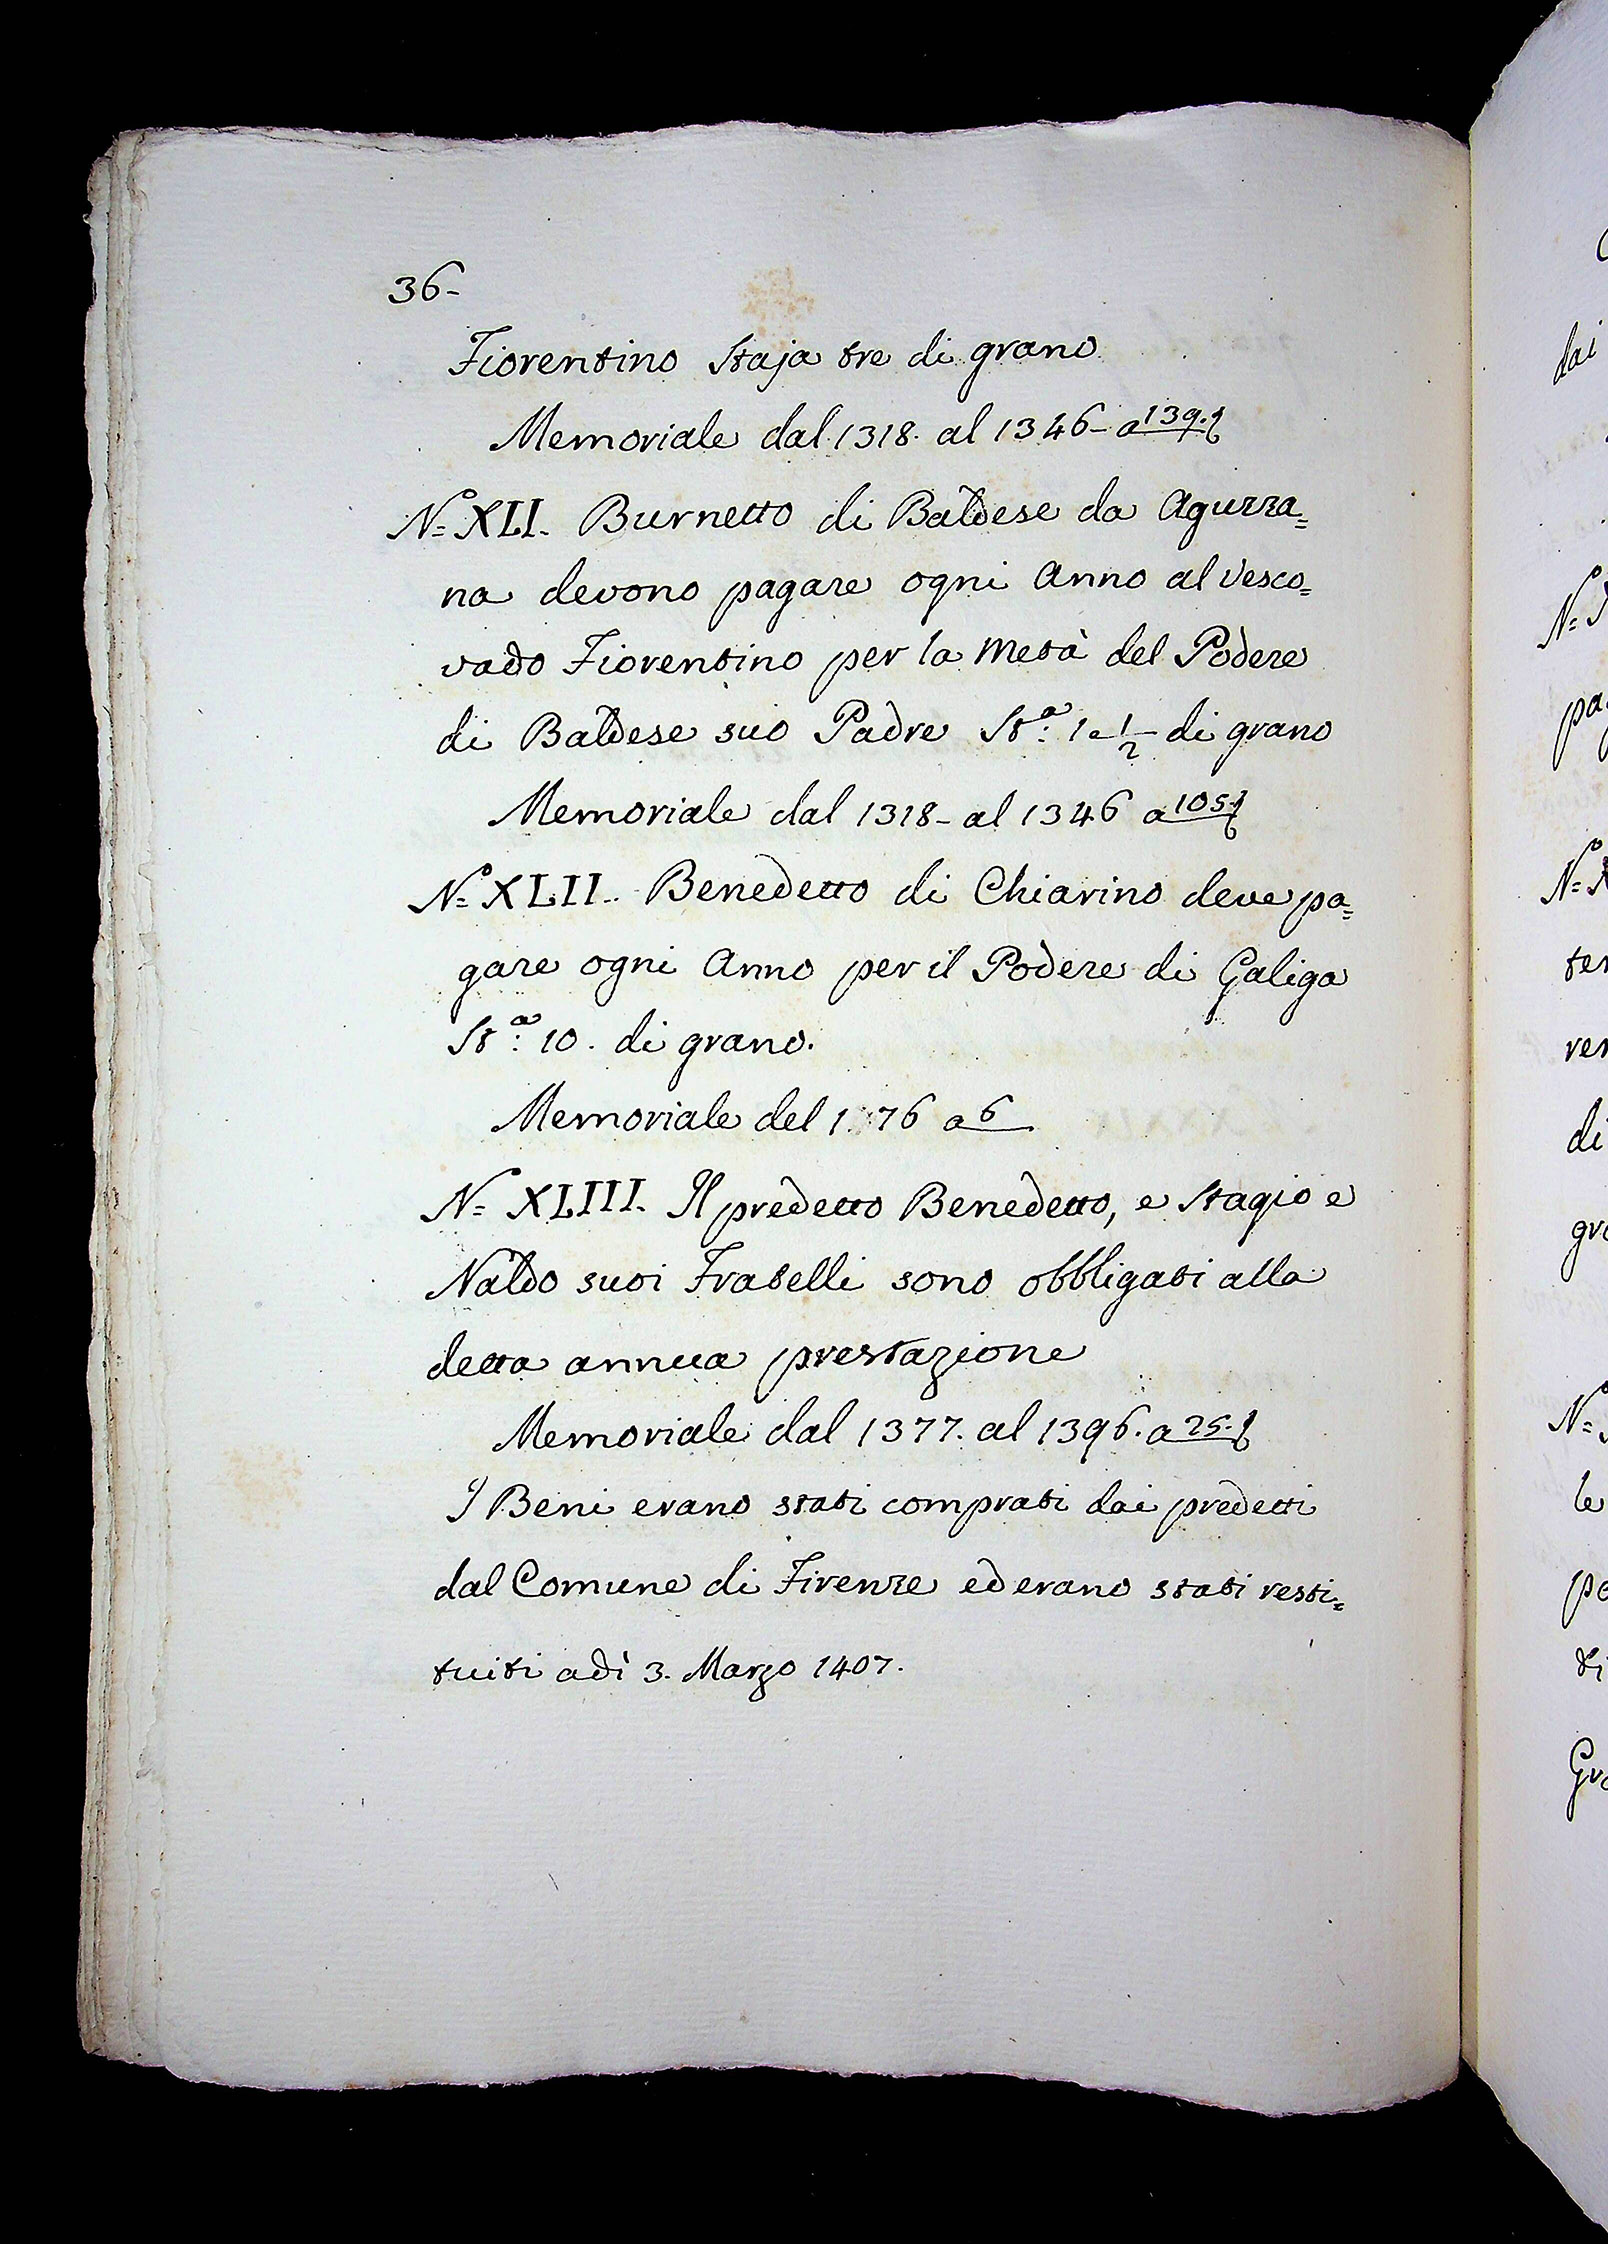 36-
Fiorentino Staja tre di grano
Memoriale dal 1318. al 1346- a 139.
N.º XLI. Burnetto di Baldese da Aguzza=
na devono pagare ogni Anno al Vesco=
vado Fiorentino per la Metà del Podere
di Baldese suo Padre St.ª 1 e 1/2 di grano
Memoriale dal 1318- al 1346 a 105.
N.º XLII. Benedetto di Chiarino deve pa=
gare ogni Anno per il Podere di Galiga
St.ª 10. di grano.
Memoriale del a 6
N.º XLIII. Il predetto Benedetto, e Stagio e
Naldo suoi Fratelli sono obbligati alla
detta annua prestazione
Memoriale dal 1377. al 1396. a 25.
I Beni erano stati comprati dai predetti
dal Comune di Firenze ed erano stati resti=
tuiti adì 3. Marzo 1407.